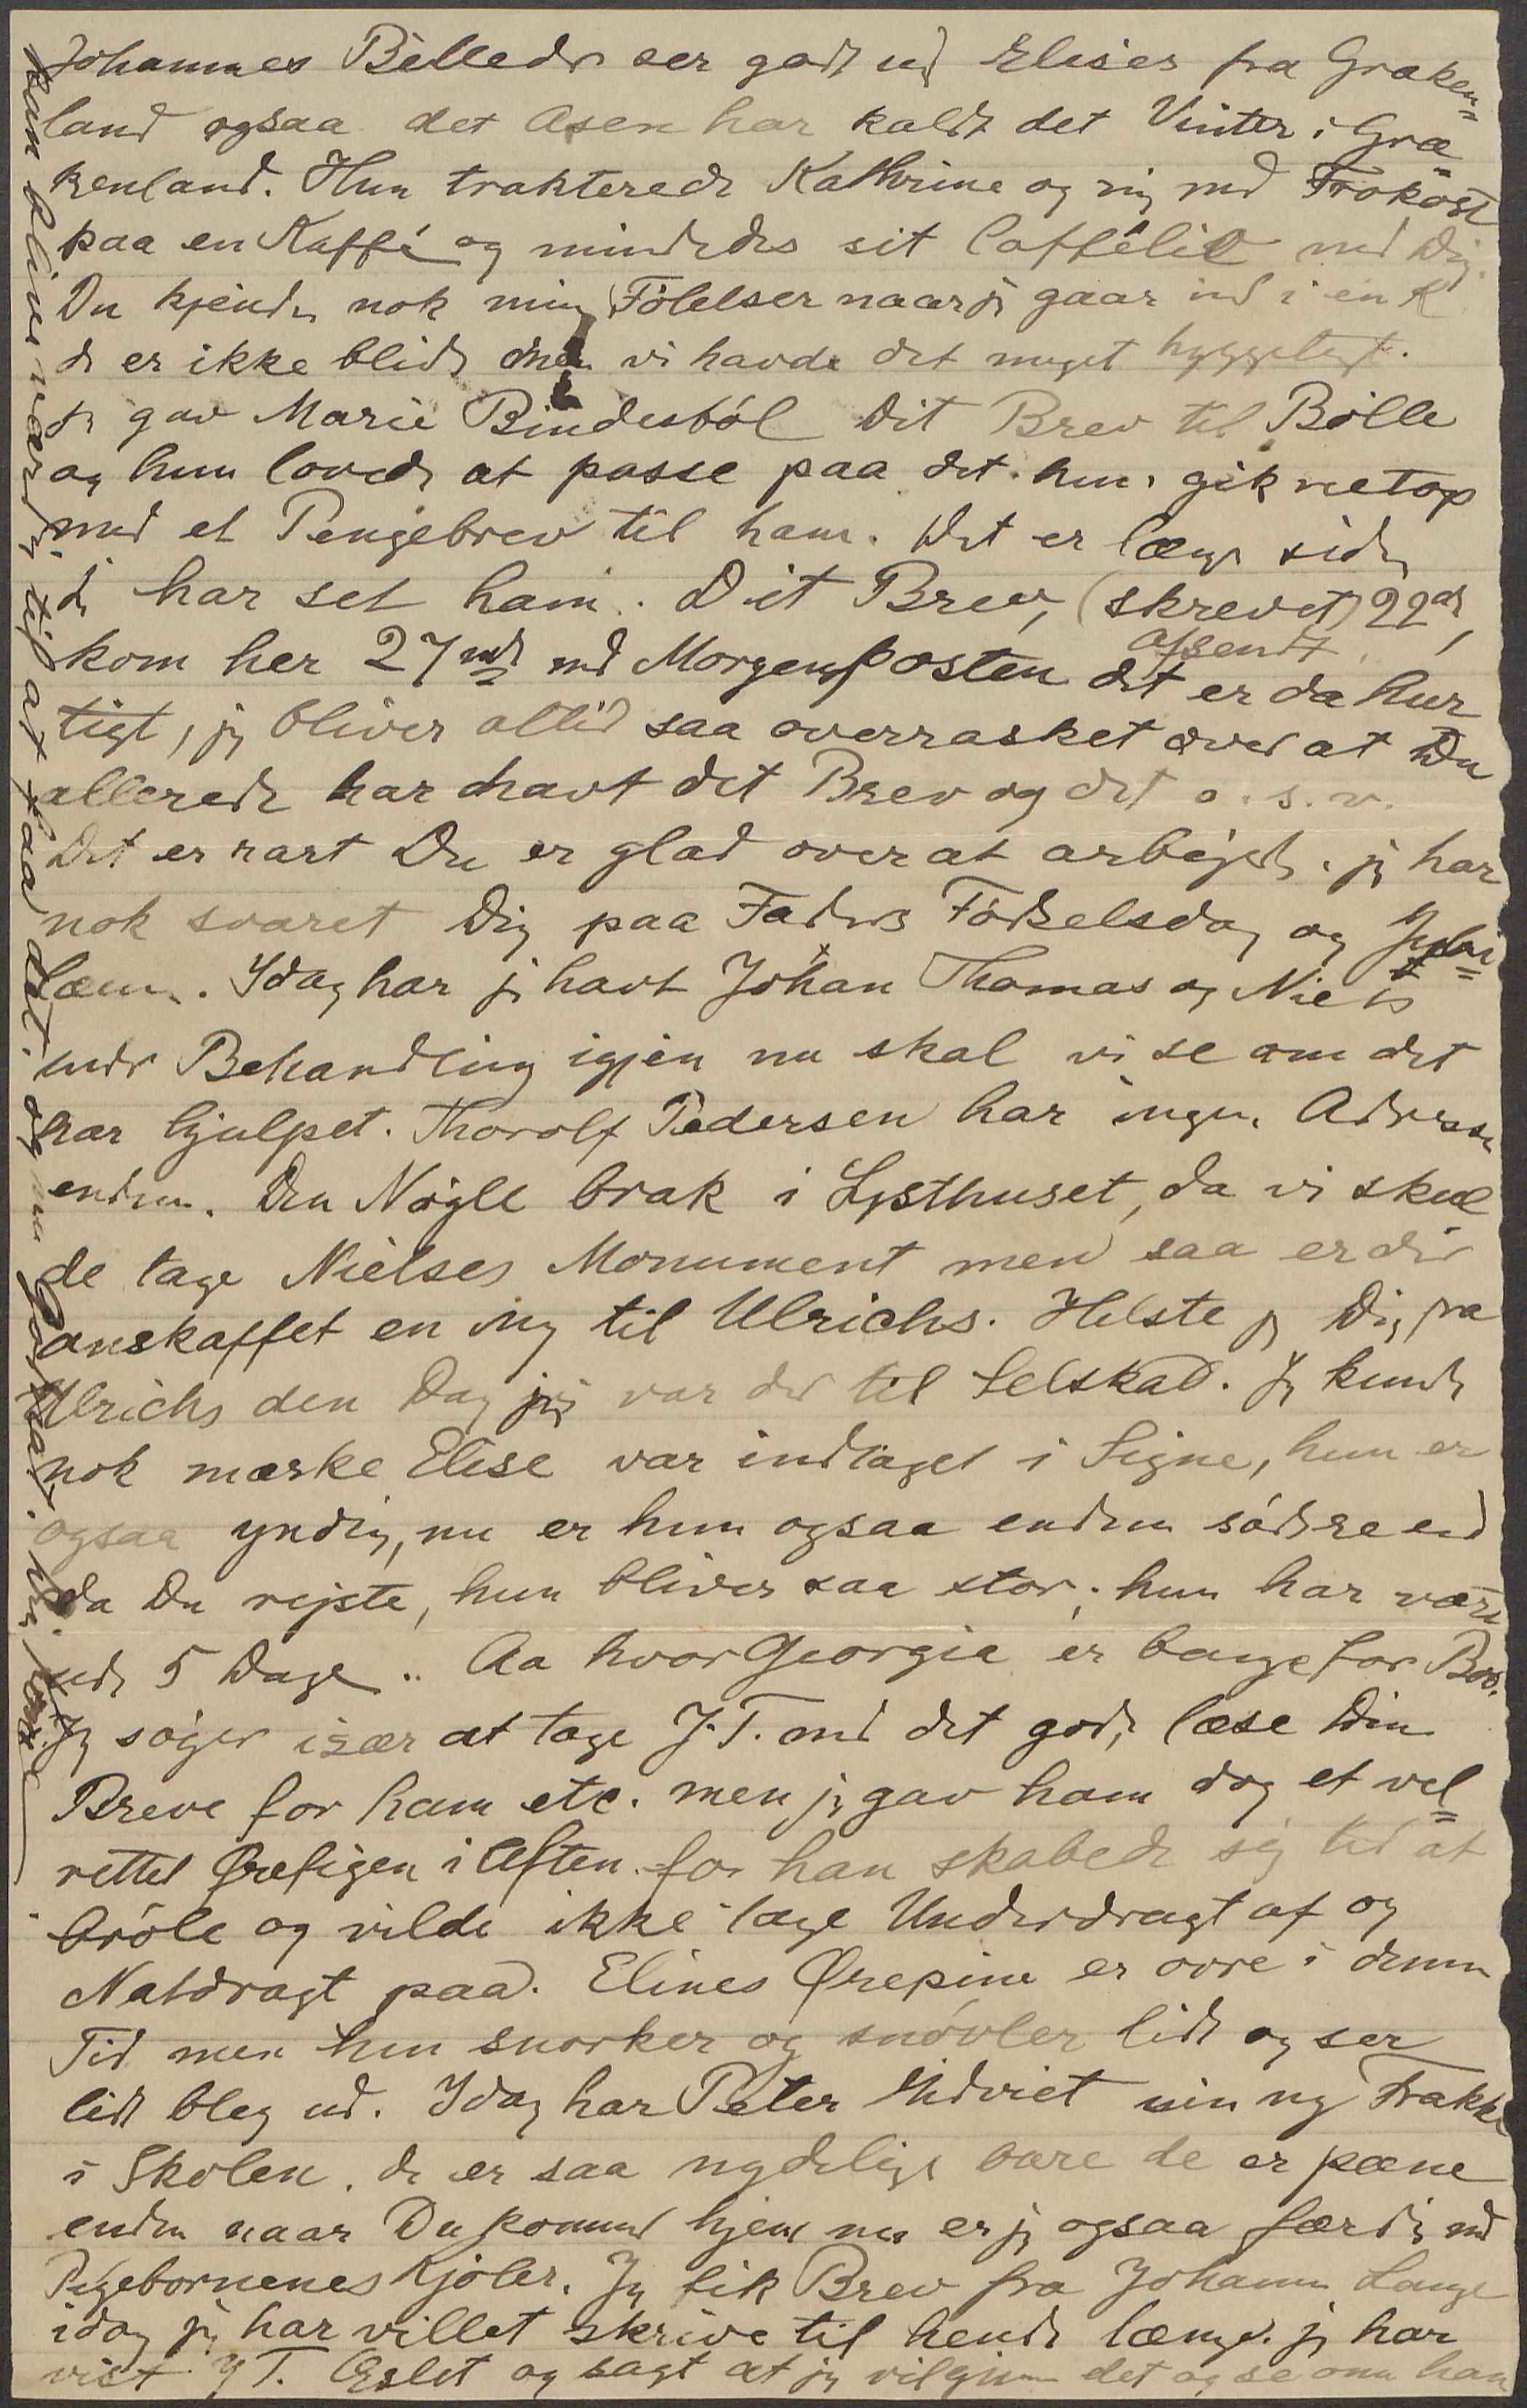 Johannes Billeder ser godt ud Elises fra Græken=
land ogsaa det Asen har kaldt det Vinter i Græ=
kenland. Hun trakterede Kathrine og mig med Frokost
paa en Kaffé og mindedes sit Caffélid med Dig.
Du kjender nok mine Følelser naar jeg gaar ind i en K
de er ikke blide men vi havde det meget hyggeligt.
Jeg gav Marie Bindesbøl Dit Brev til Bølle
og hun lovede at passe paa det. hun gik netop
med et Pengebrev til ham. Det er længe siden
jeg har set ham. Dit Brev, (skrevet) 22de
afsendt
kom her 27nde med Morgenposten det er da hur=
tigt, jeg bliver altid saa overrasket over at Du
allerede har havt det Brev og det o.s.v.
Det er rart Du er glad over at arbejde. jeg har
nok svaret Dig paa Faders Fødselsdag og Jubi=
læum. Idag har jeg havt Johan Thomas og Niels
under Behandling igjen nu skal vi se om det
har hjulpet. Thorolf Pedersen har ingen Adresse
endnu. Den Nøgle brak i Lysthuset, da vi skul
de tage Nielses Monument men saa er der
anskaffet en ny til Ulrichs. Hilste jeg Dig fra
Ulrichs den Dag jeg var der til Selskab. Jeg kunde
nok mærke Elise var indtaget i Signe, hun er
ogsaa yndig, nu er hun ogsaa endnu sødere end
da Du rejste, hun bliver saa stor; hun har være
ude 5 Dage.. Aa hvor Georgia er bange for Boo.
Jeg søger især at tage J.T. med det gode, læse Dine
Breve for ham etc. men jeg gav ham dog et vel=
rettet Ørefigen i Aften. for han skabede sig til at
brøle og vilde ikke tage Underdragt af og
Natdragt paa. Elines Ørepine er ovre i denne
Tid men hun snorker og snøvler lidt og ser
lidt bleg ud. Idag har Peter Indviet sin ny Frakke
i Skolen. de er saa nydelige bare de er pæne
endnu naar Du kommer hjem nu er jeg ogsaa færdig med
Pigebørnenes Kjoler. Jeg fik Brev fra Johanne Lange
idag jeg har villet skrive til hende længe. jeg har
vist J T. Æslet og sagt at jeg vil gjemme det og se om han
kan blive værdig til at faa det. og nu Godnat.